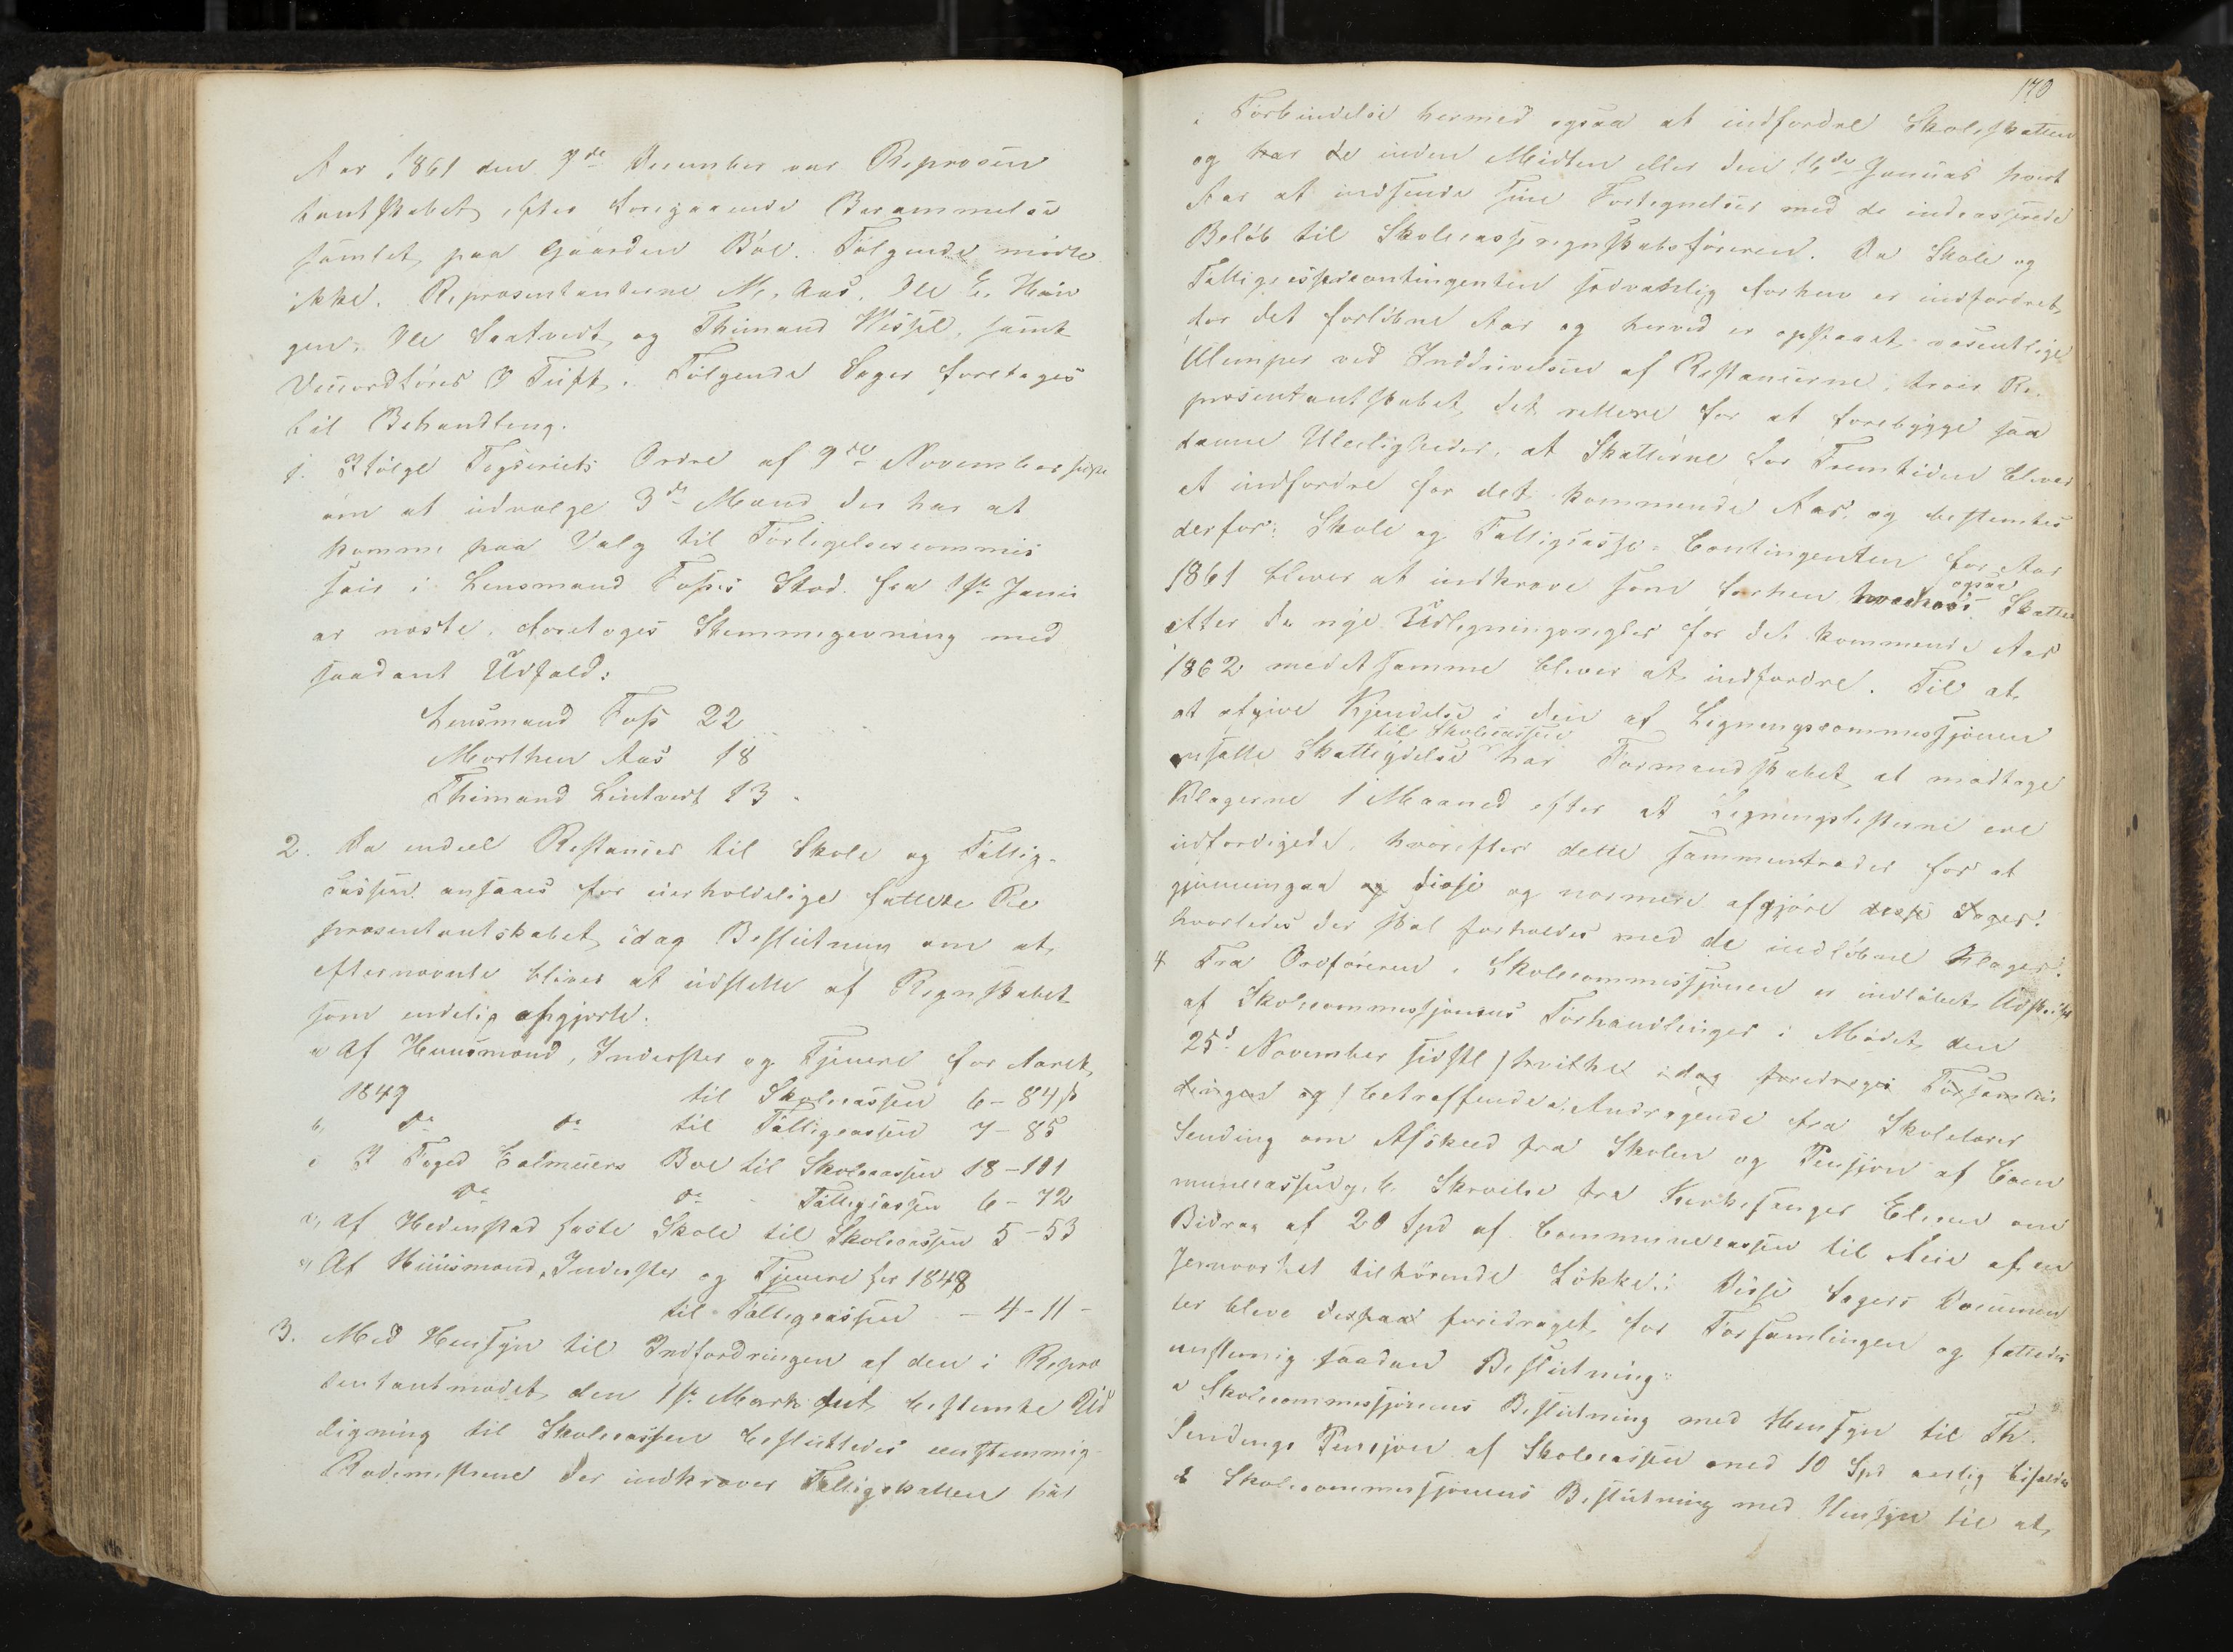 Aar 1861 den 7de December var Repræsen
tantskabet efter foregaaende Berammelse
samlet paa Gaarden Böe. Følgende mödte
ikke. Repræsentanterne M. Aas, Ole C. Hau
gen, Ole Saatvedt og Thimand Wissel, samt
Viceordförer O Tuft. Følgende Sager foretoges
til Behandling.
1. Ifølge Fogderiets Ordre af 9de November sidste
om at udvælge 3de Mænd der har at
komme paa Valg til Forligelsescommis
sair i Lensmand Foss's Sted fra 1ste Janu
ar næste, foretoges Stemmegivning med
saadant Udfald:
Lensmand Foss 22
Morthen Aas 18
Thimand Lintvedt 13
2. Da endeel Restancer til Skole og Fattig-
cassen ansaaes for uerholdelige fattede Re
præsentantskabet idag Beslutning om at
efternævnte bliver at udslette af Regnskabet
som endelig afgjorte.
a Af Huusmænd, Inderster og Tjenere for Aaret
1849 til Skolecassen 6 - 84 s
b, do do til Fattigcassen 7 - 85
c I Foged Colmeiers Boe til Skolecassen 18 - 101
do do Fattigcassen 6 - 72
d, af Hedenstad faste Skole til Skolecassen 5 - 53
e, Af Huusmænd, Inderster og Tjenere for 1848
til Fattigcassen - 4 - 11 -
3. Med Hensyn til Indfordringen af den i Repræ
sentantmødet den 1ste Marts sidst bestemte Ud
ligning til Skolecassen besluttedes eenstemmig
Rodemestrene der indkræver Fattigskatten har
170
i Forbindelse hermed ogsaa at indfordre Skoleskatten
og har de inden Midten eller den 16de Januar hvert
Aar at indsende sine Fortegnelser med de indcasserede
Beløb til Skolecasseregnskabsføreren. Da Skole og
Fattigcassecontingenten sædvanlig forhen er indfordret
for det forløbne Aar og herved er opstaaet væsentlige
Ulemper ved Inddrivelsen af Restancerne, troer Re-
præsentantskabet det rettere for at forebygge saa
danne Uleiligheder, at Skatterne for Fremtiden bliver
at indfordre for det kommende Aar, og bestemtes
derfor: Skole og Fattigcasse-Contingenten for Aar
1861 bliver at indkræve som forhen hvorhos ogsaa Skatten
efter de nye Udligningsregler for det kommende Aar
1862 medetsamme bliver at indfordre. Til at
at afgive Kjendelse i den af Ligningscommissionen
ansatte Skatteydelse til Skolecassen har Formandskabet at modtage
Klagerne 1 Maaned efter at Ligningslisterne ere
udfærdigede, hvorefter dette sammentræder for at
gjennemgaa og disse og nærmere afgjøre disse Sager:
hvorledes der skal forholdes med de indløbne Klager.
4 Fra Ordføreren i Skolecommissionen er indløbet Udskrift
af Skolecommissionens Forhandlinger i Mødet den
25d November sidstl / hvilke idag foredroges Forsam
lingen og / betreffende a, Andragende fra Skolelærer
Sending om Afskeed fra Skolen og Pension af Com
munecassen, og b. Skrivelse fra Kirkesanger Elssen om
Bidrag af 20 Spd af Communecassen til Leie af en
Jernværket tilhørende Løkke. Disse Sagers Documen
ter bleve derpaa foredraget for Forsamlingen og fattedes
eenstemmig saadan Beslutning:
a Skolecommissionens Beslutning med Hensyn til Th.
Sendings Pension af Skolecassen med 10 Spd aarlig bifaldes
b Skolecommissionens Beslutning med Hensyn til at